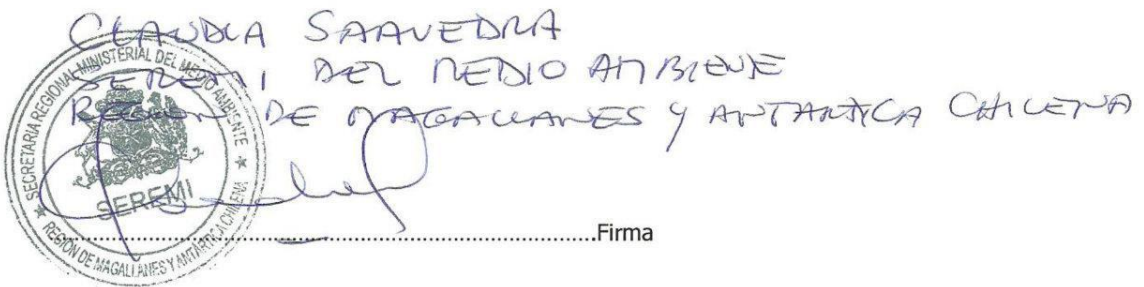 CLAUDIA SAAVEDRA
SEREMI DEL MEDIO AMBIENTE
REGION DE MAGALLANES Y ANTARTICA CHILENA
SECRETARIA REGIONAL MINISTERIAL DEL MEDIO AMBIENTE
SEREMI
★ REGIÓN DE MAGALLANES Y ANTÁRTICA CHILENA ★
Firma